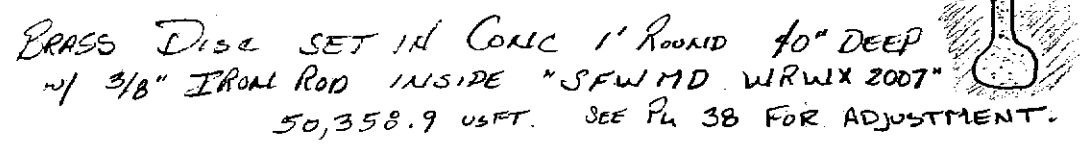 BRASS DISC SET IN CONC 1' ROUND 40" DEEP
w/ 3/8" IRON ROD INSIDE "SFWMD WRWX 2007"
50,358.9 USFT. SEE PG 38 FOR ADJUSTMENT.